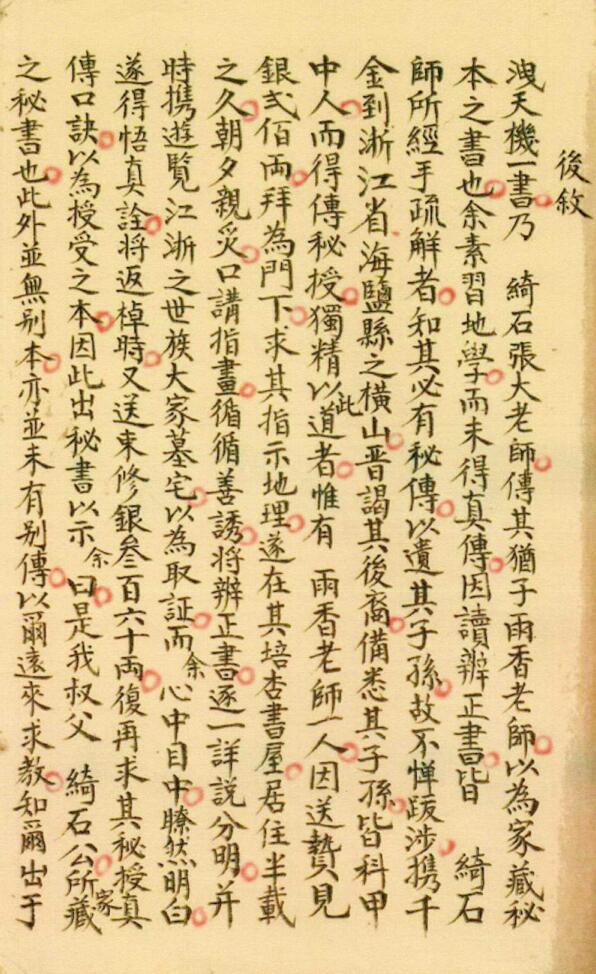 後敘
洩天機一書乃 綺石張大老師傳其猶子雨香老師以為家藏秘
本之書也余素習地學而未得真傳因讀辨正書皆 綺石
師所經手疏解者和其必有秘傳以遺其子孫故不憚跋涉攜千
金到浙江省海鹽縣之橫山晋謁其後裔備悉其子孫皆科甲
中人而得傳秘授獨精以此道者惟有 雨香老師一人因送贄見
銀弍佰両拜為門下求其指示地理遂在其培杏書屋居住半載
之久朝夕親炙口講指畫循循善誘將辨正書逐一詳説分明并
時携遊覧江浙之世族大家墓宅以為取証而余心中目中瞭然明白
遂得悟真詮將返棹時又送束修銀叁百六十両復再求其秘授真
傳口訣以為授受之本因此出秘書以示余曰是我叔父 綺石公所家藏
之秘書也此外並無别本亦並未有别傳以爾遠來求教知爾出于